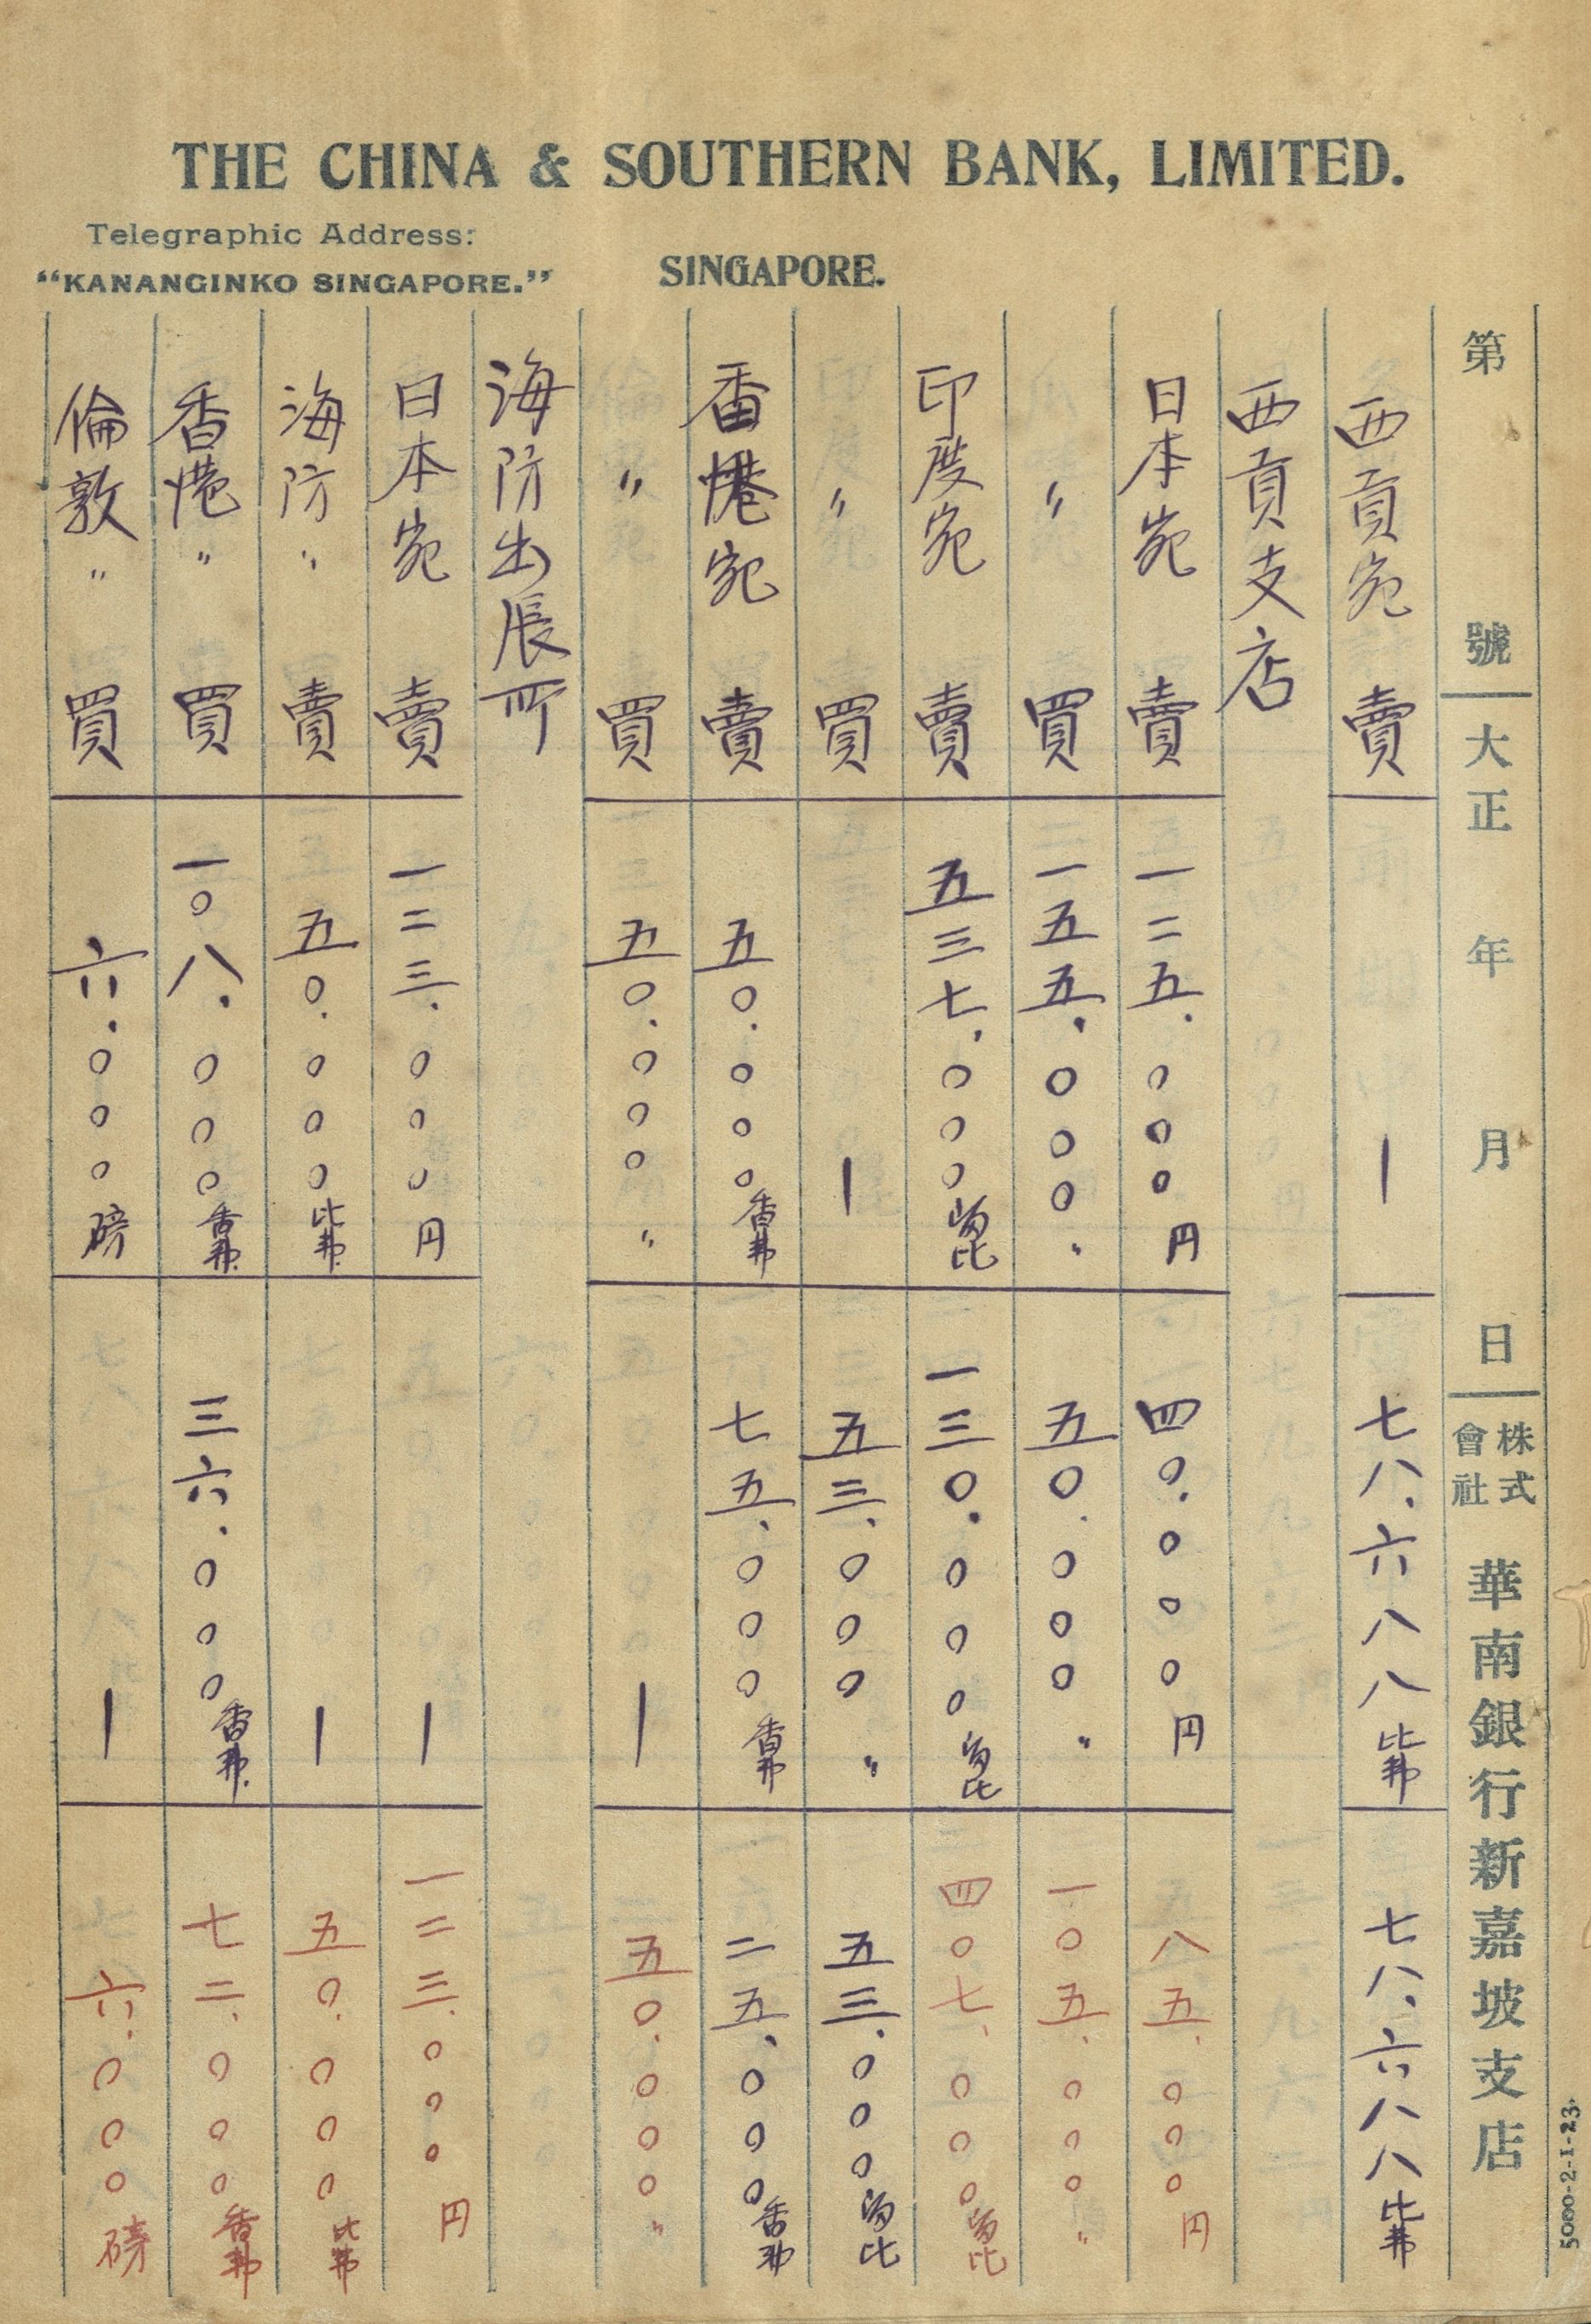 THE CHINA & SOUTHERN BANK, LIMITED.
Telegraphic Address:
“KANANGINKO SINGAPORE.”
SINGAPORE.
第 號 大正 年 月 日 株式會社 華南銀行新嘉坡支店
西貢宛 賣 一 七八.六八八比弗 七八.六八八比弗
西貢支店
日本宛 賣 一二五.〇〇〇円 四〇.〇〇〇円 八五.〇〇〇円
〃 買 一五五.〇〇〇〃 五〇.〇〇〇〃 一〇五.〇〇〇〃
印度宛 賣 五三七.〇〇〇留比 一三〇.〇〇〇留比 四〇七.〇〇〇留比
〃 買 一 五三.〇〇〇〃 五三.〇〇〇留比
香港宛 賣 五〇.〇〇〇香弗 七五.〇〇〇香弗 二五.〇〇〇香弗
〃 買 五〇.〇〇〇〃 一 五〇.〇〇〇〃
海防出張所
日本宛 賣 一二三.〇〇〇円 一 一二三.〇〇〇円
海防〃 賣 五〇.〇〇〇比弗 一 五〇.〇〇〇比弗
香港〃 買 一〇八.〇〇〇香弗 三六.〇〇〇香弗 七二.〇〇〇香弗
倫敦〃 買 六.〇〇〇磅 一 六.〇〇〇磅
5000-2-1-23.